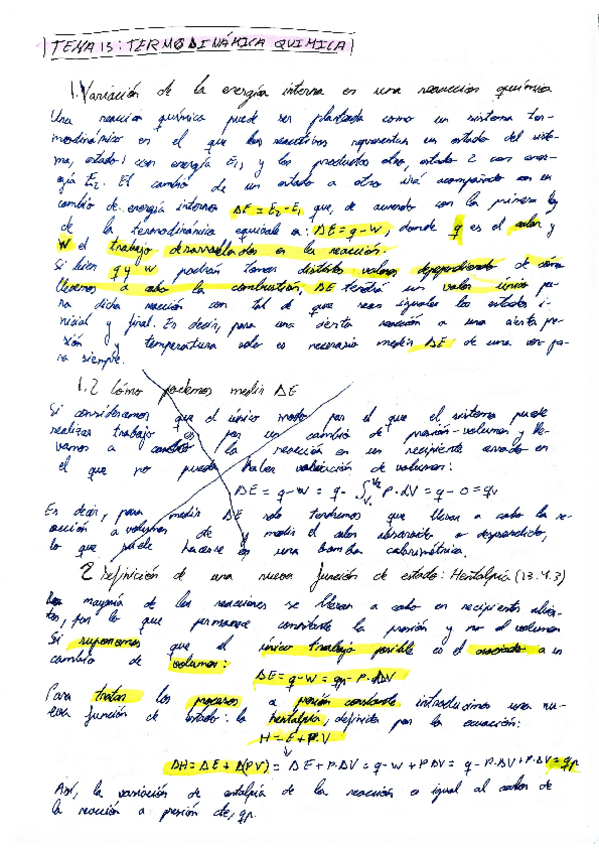 TEMA 13: TERMODINÁMICA QUIMICA
1. Variación de la energía interna en una reacción química
Una reacción química puede ser planteada como un sistema ter-
modinámico en el que los reactivos representan un estado del siste-
ma, estado 1 con energía E1, y los productos otro, estado 2 con ener-
gía E2. El cambio de un estado a otro irá acompañado con un
cambio de energía interna ΔE = E2 - E1 que, de acuerdo con la primera ley
de la termodinámica equivale a: ΔE = q - w, donde q es el calor y
w el trabajo desarrollados en la reacción.
Si bien q y w podrán tomar distintos valores dependiendo de cómo
llevemos a cabo la combustión, ΔE tendrá un valor único pa-
ra dicha reacción con tal de que sean iguales los estados i-
nicial y final. Es decir, para una cierta reacción a una cierta pre-
sión y temperatura solo es necesario medir ΔE de una vez pa-
ra siempre.
1.2 Cómo podemos medir ΔE
Si consideramos que el único modo por el que el sistema puede
realizar trabajo es por un cambio de presión-volumen y lle-
vamos a cabo la reacción en un recipiente cerrado en
el que no pueda haber variación de volumen:
ΔE = q - w = q - ∫V1V2 P·dV = q - 0 = qv
Es decir, para medir ΔE solo tendremos que llevar a cabo la re-
acción a volumen de y medir el calor absorbido o desprendido,
lo que puede hacerse en una bomba calorimétrica.
2 Definición de una nueva función de estado: Hentalpía (13.4.3)
La mayoría de las reacciones se llevan a cabo en recipientes abier-
tos, por lo que permanece constante la presión y no el volumen
Si suponemos que el único trabajo posible es el asociado a un
cambio de volumen:
ΔE = q - w = qp - P·ΔV
Para tratar los procesos a presión constante introducimos una nu-
eva función de estado: la hentalpía, definida por la ecuación:
H = E + P.V
↓
ΔH = ΔE + Δ(PV) = ΔE + P·ΔV = q - w + PΔV = q - P·ΔV + P·ΔV = qp
Así, la variación de entalpía de la reacción es igual al calor de
la reacción a presión cte, qp.